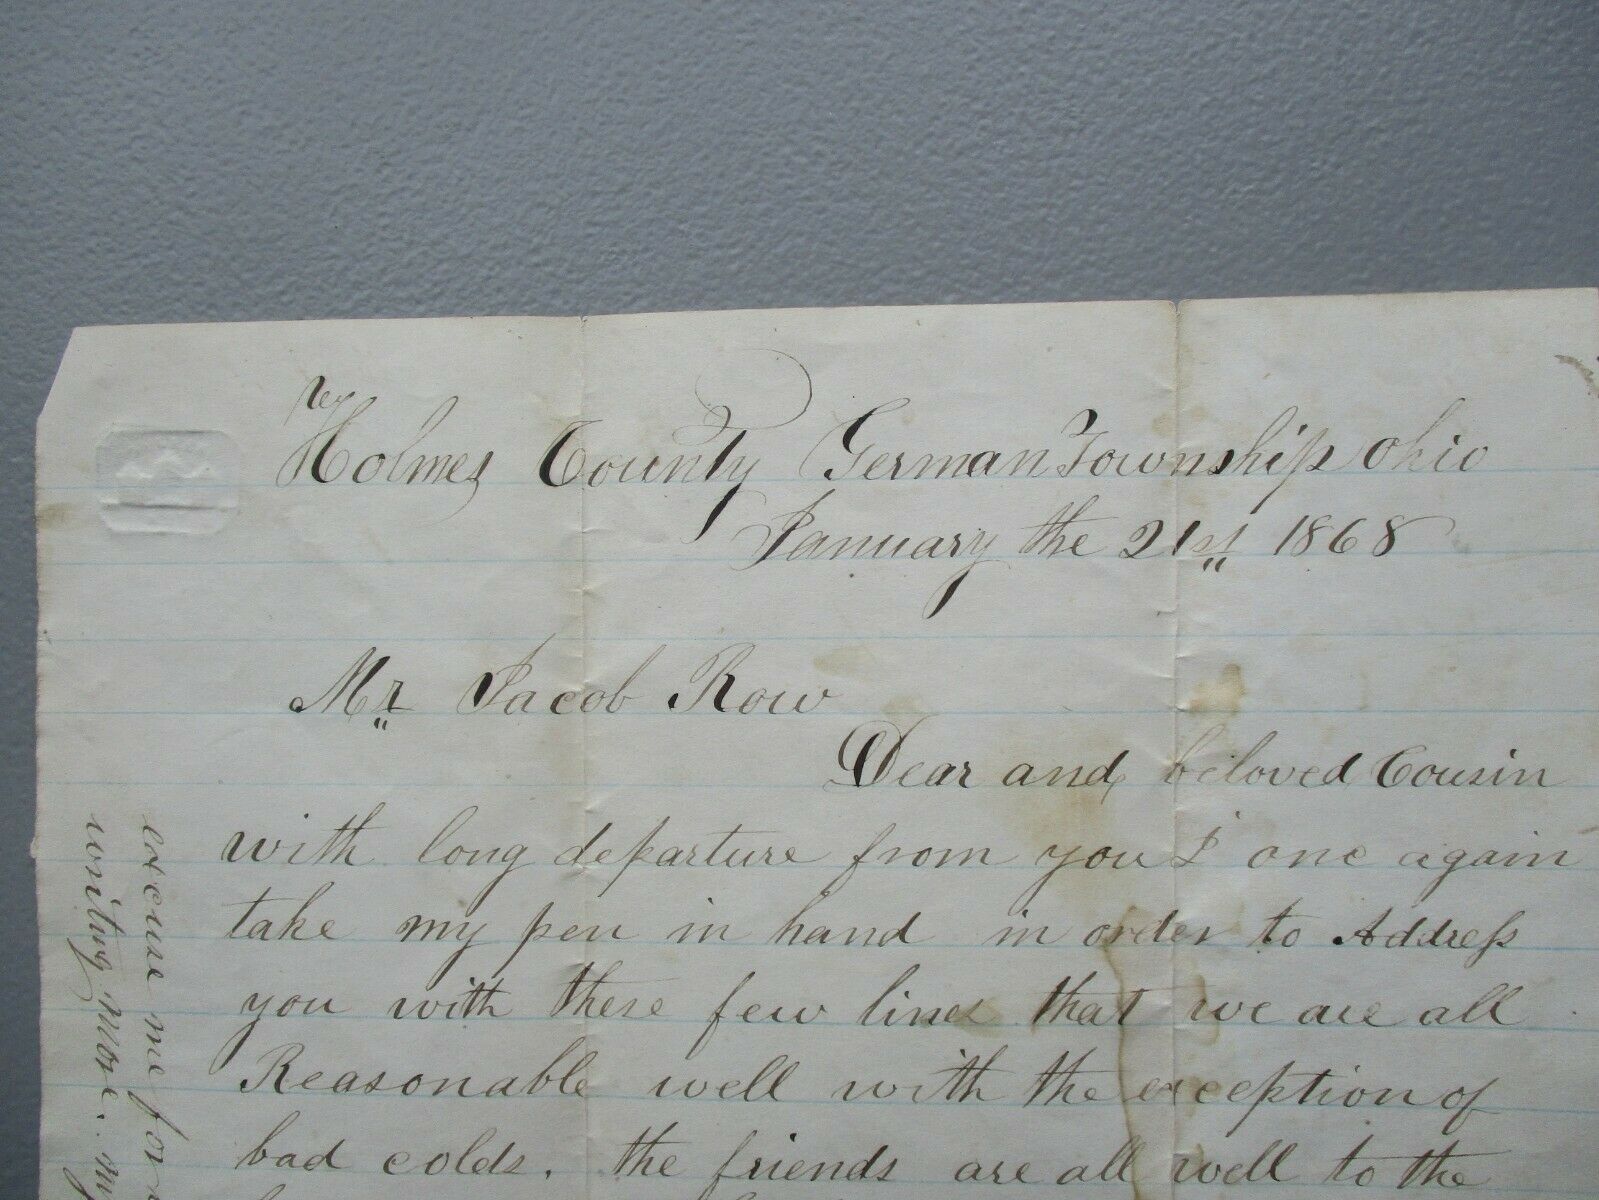 Holmes County German Township Ohio
January the 21st 1868
Mr Jacob Row
Dear and beloved Cousin
with long departure from you I one again
take my pen in hand in order to Address
you with these few lines that we are all
Reasonable well with the exception of
bad colds. the friends are all well to the
excuse me for
writing more. my